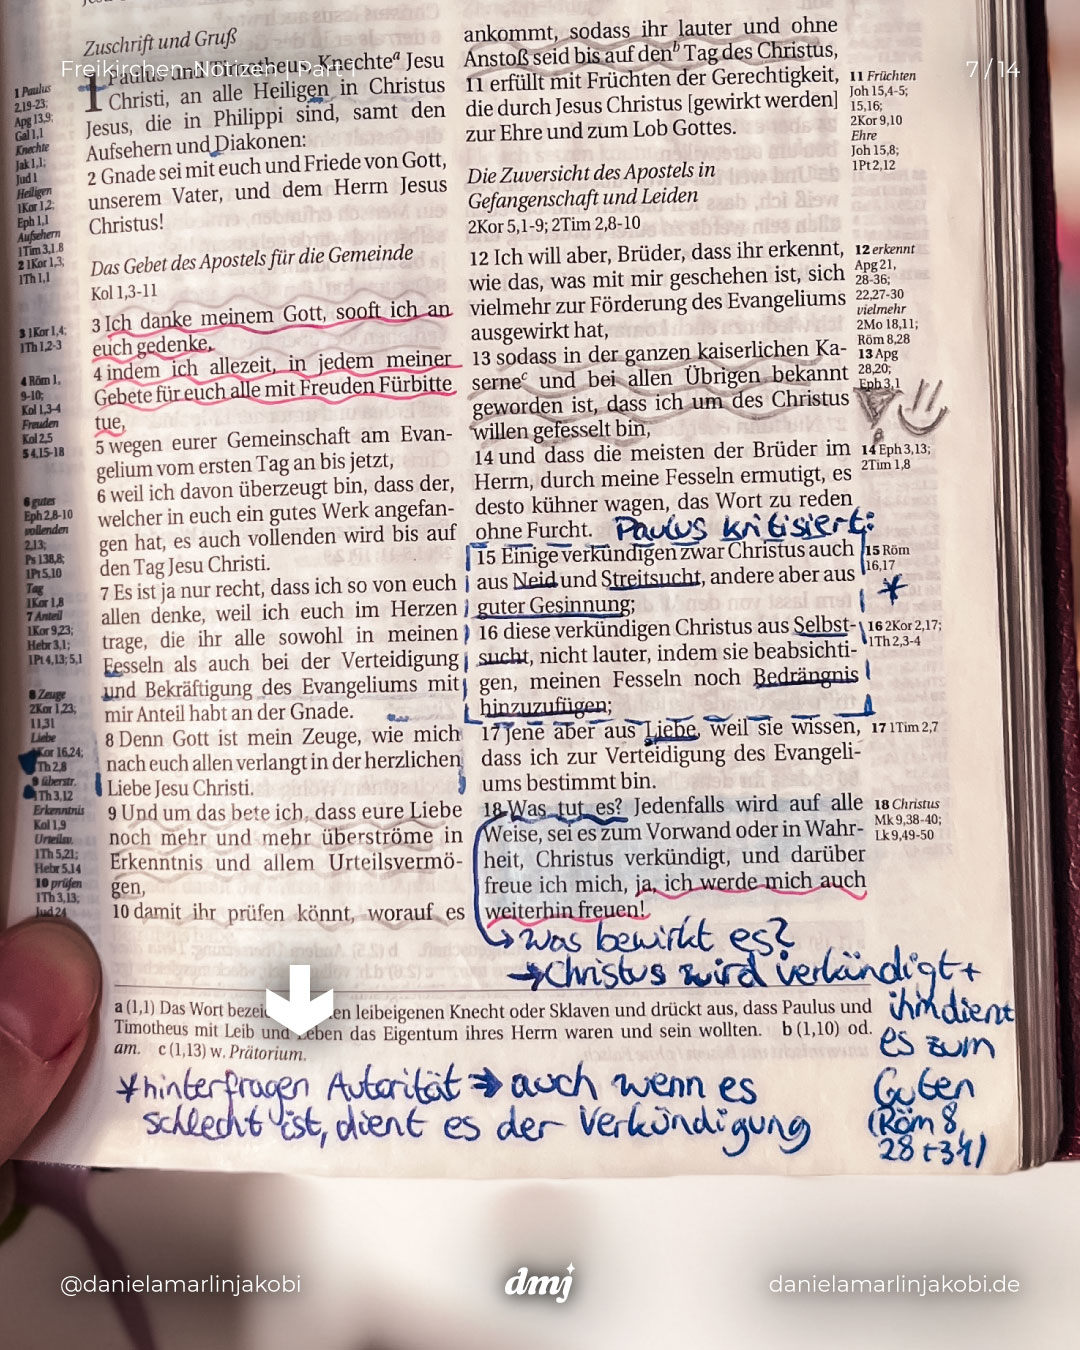 Freikirchen-Notizen | Part 1
7 / 14
Zuschrift und Gruß
1 Paulus und Timotheus, Knechteᵃ Jesu
Christi, an alle Heiligen in Christus
Jesus, die in Philippi sind, samt den
Aufsehern und Diakonen:
2 Gnade sei mit euch und Friede von Gott,
unserem Vater, und dem Herrn Jesus
Christus!
Das Gebet des Apostels für die Gemeinde
Kol 1,3-11
3 Ich danke meinem Gott, sooft ich an
euch gedenke,
4 indem ich allezeit, in jedem meiner
Gebete für euch alle mit Freuden Fürbitte
tue,
5 wegen eurer Gemeinschaft am Evan-
gelium vom ersten Tag an bis jetzt,
6 weil ich davon überzeugt bin, dass der,
welcher in euch ein gutes Werk angefan-
gen hat, es auch vollenden wird bis auf
den Tag Jesu Christi.
7 Es ist ja nur recht, dass ich so von euch
allen denke, weil ich euch im Herzen
trage, die ihr alle sowohl in meinen
Fesseln als auch bei der Verteidigung
und Bekräftigung des Evangeliums mit
mir Anteil habt an der Gnade.
8 Denn Gott ist mein Zeuge, wie mich
nach euch allen verlangt in der herzlichen
Liebe Jesu Christi.
9 Und um das bete ich, dass eure Liebe
noch mehr und mehr überströme in
Erkenntnis und allem Urteilsvermö-
gen,
10 damit ihr prüfen könnt, worauf es
1 Paulus
2,19-23;
Apg 13,9;
Gal 1,1
Knechte
Jak 1,1;
Jud 1
Heiligen
1Kor 1,2;
Eph 1,1
Aufsehern
1Tim 3,1.8
2 1Kor 1,3;
1Th 1,1
3 1Kor 1,4;
1Th 1,2-3
4 Röm 1,
9-10;
Kol 1,3-4
Freuden
Kol 2,5
5 4,15-18
6 gutes
Eph 2,8-10
vollenden
2,13;
Ps 138,8;
1Pt 5,10
Tag
1Kor 1,8
7 Anteil
1Kor 9,23;
Hebr 3,1;
1Pt 4,13; 5,1
8 Zeuge
2Kor 1,23;
11,31
Liebe
Kor 16,24;
Th 2,8
9 überstr.
1Th 3,12
Erkenntnis
Kol 1,9
Urteilsv.
1Th 5,21;
Hebr 5,14
10 prüfen
1Th 3,13;
Jud 24
ankommt, sodass ihr lauter und ohne
Anstoß seid bis auf denᵇ Tag des Christus,
11 erfüllt mit Früchten der Gerechtigkeit,
die durch Jesus Christus [gewirkt werden]
zur Ehre und zum Lob Gottes.
Die Zuversicht des Apostels in
Gefangenschaft und Leiden
2Kor 5,1-9; 2Tim 2,8-10
12 Ich will aber, Brüder, dass ihr erkennt,
wie das, was mit mir geschehen ist, sich
vielmehr zur Förderung des Evangeliums
ausgewirkt hat,
13 sodass in der ganzen kaiserlichen Ka-
serneᶜ und bei allen Übrigen bekannt
geworden ist, dass ich um des Christus
willen gefesselt bin,
14 und dass die meisten der Brüder im
Herrn, durch meine Fesseln ermutigt, es
desto kühner wagen, das Wort zu reden
ohne Furcht. Paulus kritisiert:
15 Einige verkündigen zwar Christus auch
aus Neid und Streitsucht, andere aber aus
guter Gesinnung;
16 diese verkündigen Christus aus Selbst-
sucht, nicht lauter, indem sie beabsichti-
gen, meinen Fesseln noch Bedrängnis
hinzuzufügen;
17 jene aber aus Liebe, weil sie wissen,
dass ich zur Verteidigung des Evangeli-
ums bestimmt bin.
18 Was tut es? Jedenfalls wird auf alle
Weise, sei es zum Vorwand oder in Wahr-
heit, Christus verkündigt, und darüber
freue ich mich, ja, ich werde mich auch
weiterhin freuen!
11 Früchten
Joh 15,4-5;
15,16;
2Kor 9,10
Ehre
Joh 15,8;
1Pt 2,12
12 erkennt
Apg 21,
28-36;
22,27-30
vielmehr
2Mo 18,11;
Röm 8,28
13 Apg
28,20;
Eph 3,1
14 Eph 3,13;
2Tim 1,8
15 Röm
16,17
*
16 2Kor 2,17;
1Th 2,3-4
17 1Tim 2,7
18 Christus
Mk 9,38-40;
Lk 9,49-50
→ Was bewirkt es?
→ Christus wird verkündigt +
ihm dient
es zum
Guten
(Röm 8,
28 + 31)
a (1,1) Das Wort bezei en leibeigenen Knecht oder Sklaven und drückt aus, dass Paulus und
Timotheus mit Leib und Leben das Eigentum ihres Herrn waren und sein wollten. b (1,10) od.
am. c (1,13) w. Prätorium.
* hinterfragen Autorität ⇒ auch wenn es
schlecht ist, dient es der Verkündigung
@danielamarlinjakobi
dmj
danielamarlinjakobi.de